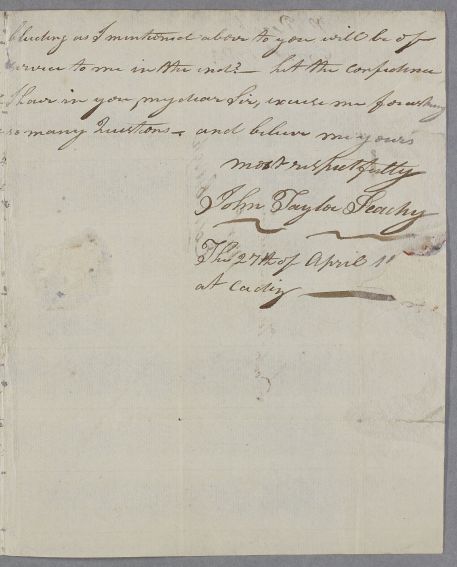 bleeding as I mentioned above to you will be of
service to me in the end? — let the confidence
I have in you, my dear Sir, excuse me for asking
so many Questions — and believe me yours
most respectfully
John Taylor
The 27th of April
at Cadiz